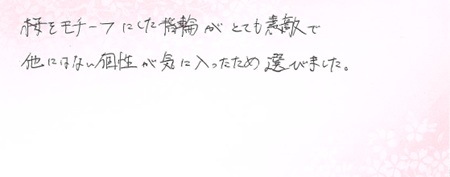 桜をモチーフにした指輪がとても素敵で
他にはない個性が気に入ったため選びました。